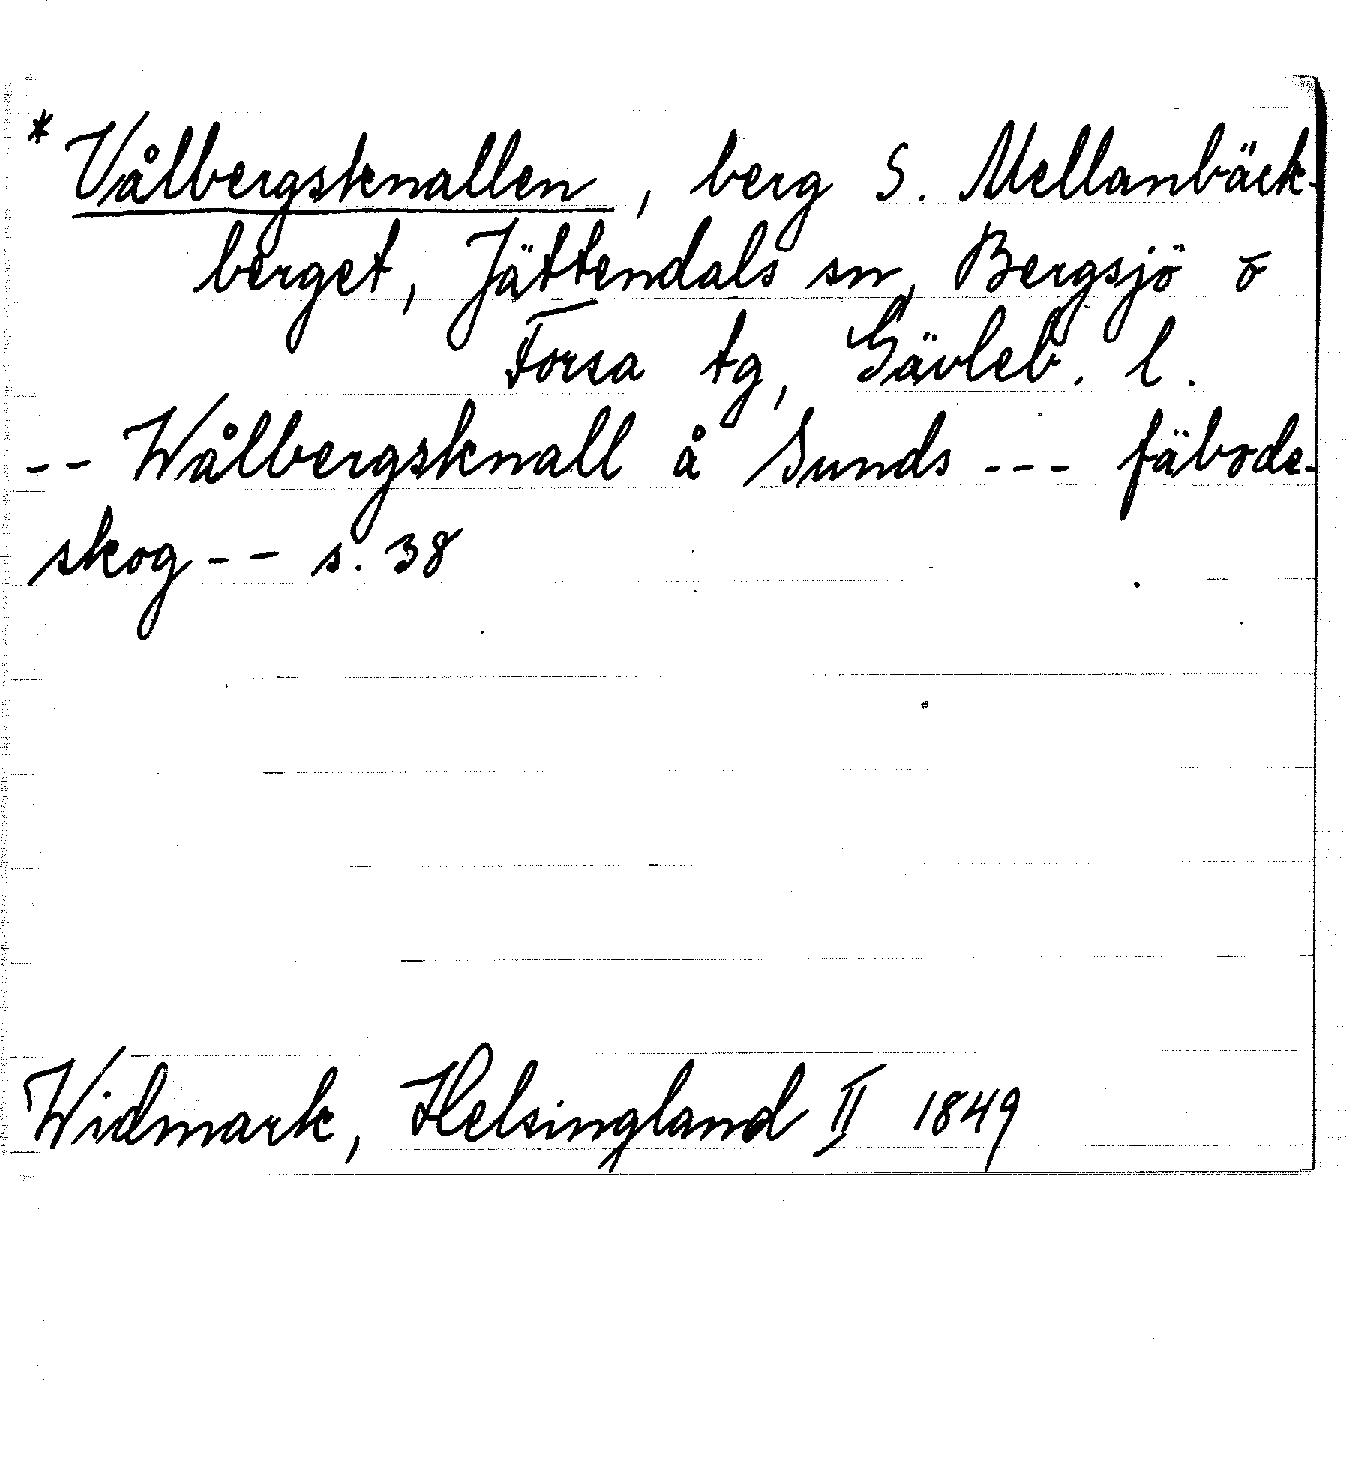 * Vålbergsknallen, berg S. Mellanbäck-
berget, Jättendals sn, Bergsjö o
Forsa tg, Gävleb. l.
-- Wålbergsknall å Sunds --- fäbode-
skog -- s. 38
Widmark, Helsingland II 1849